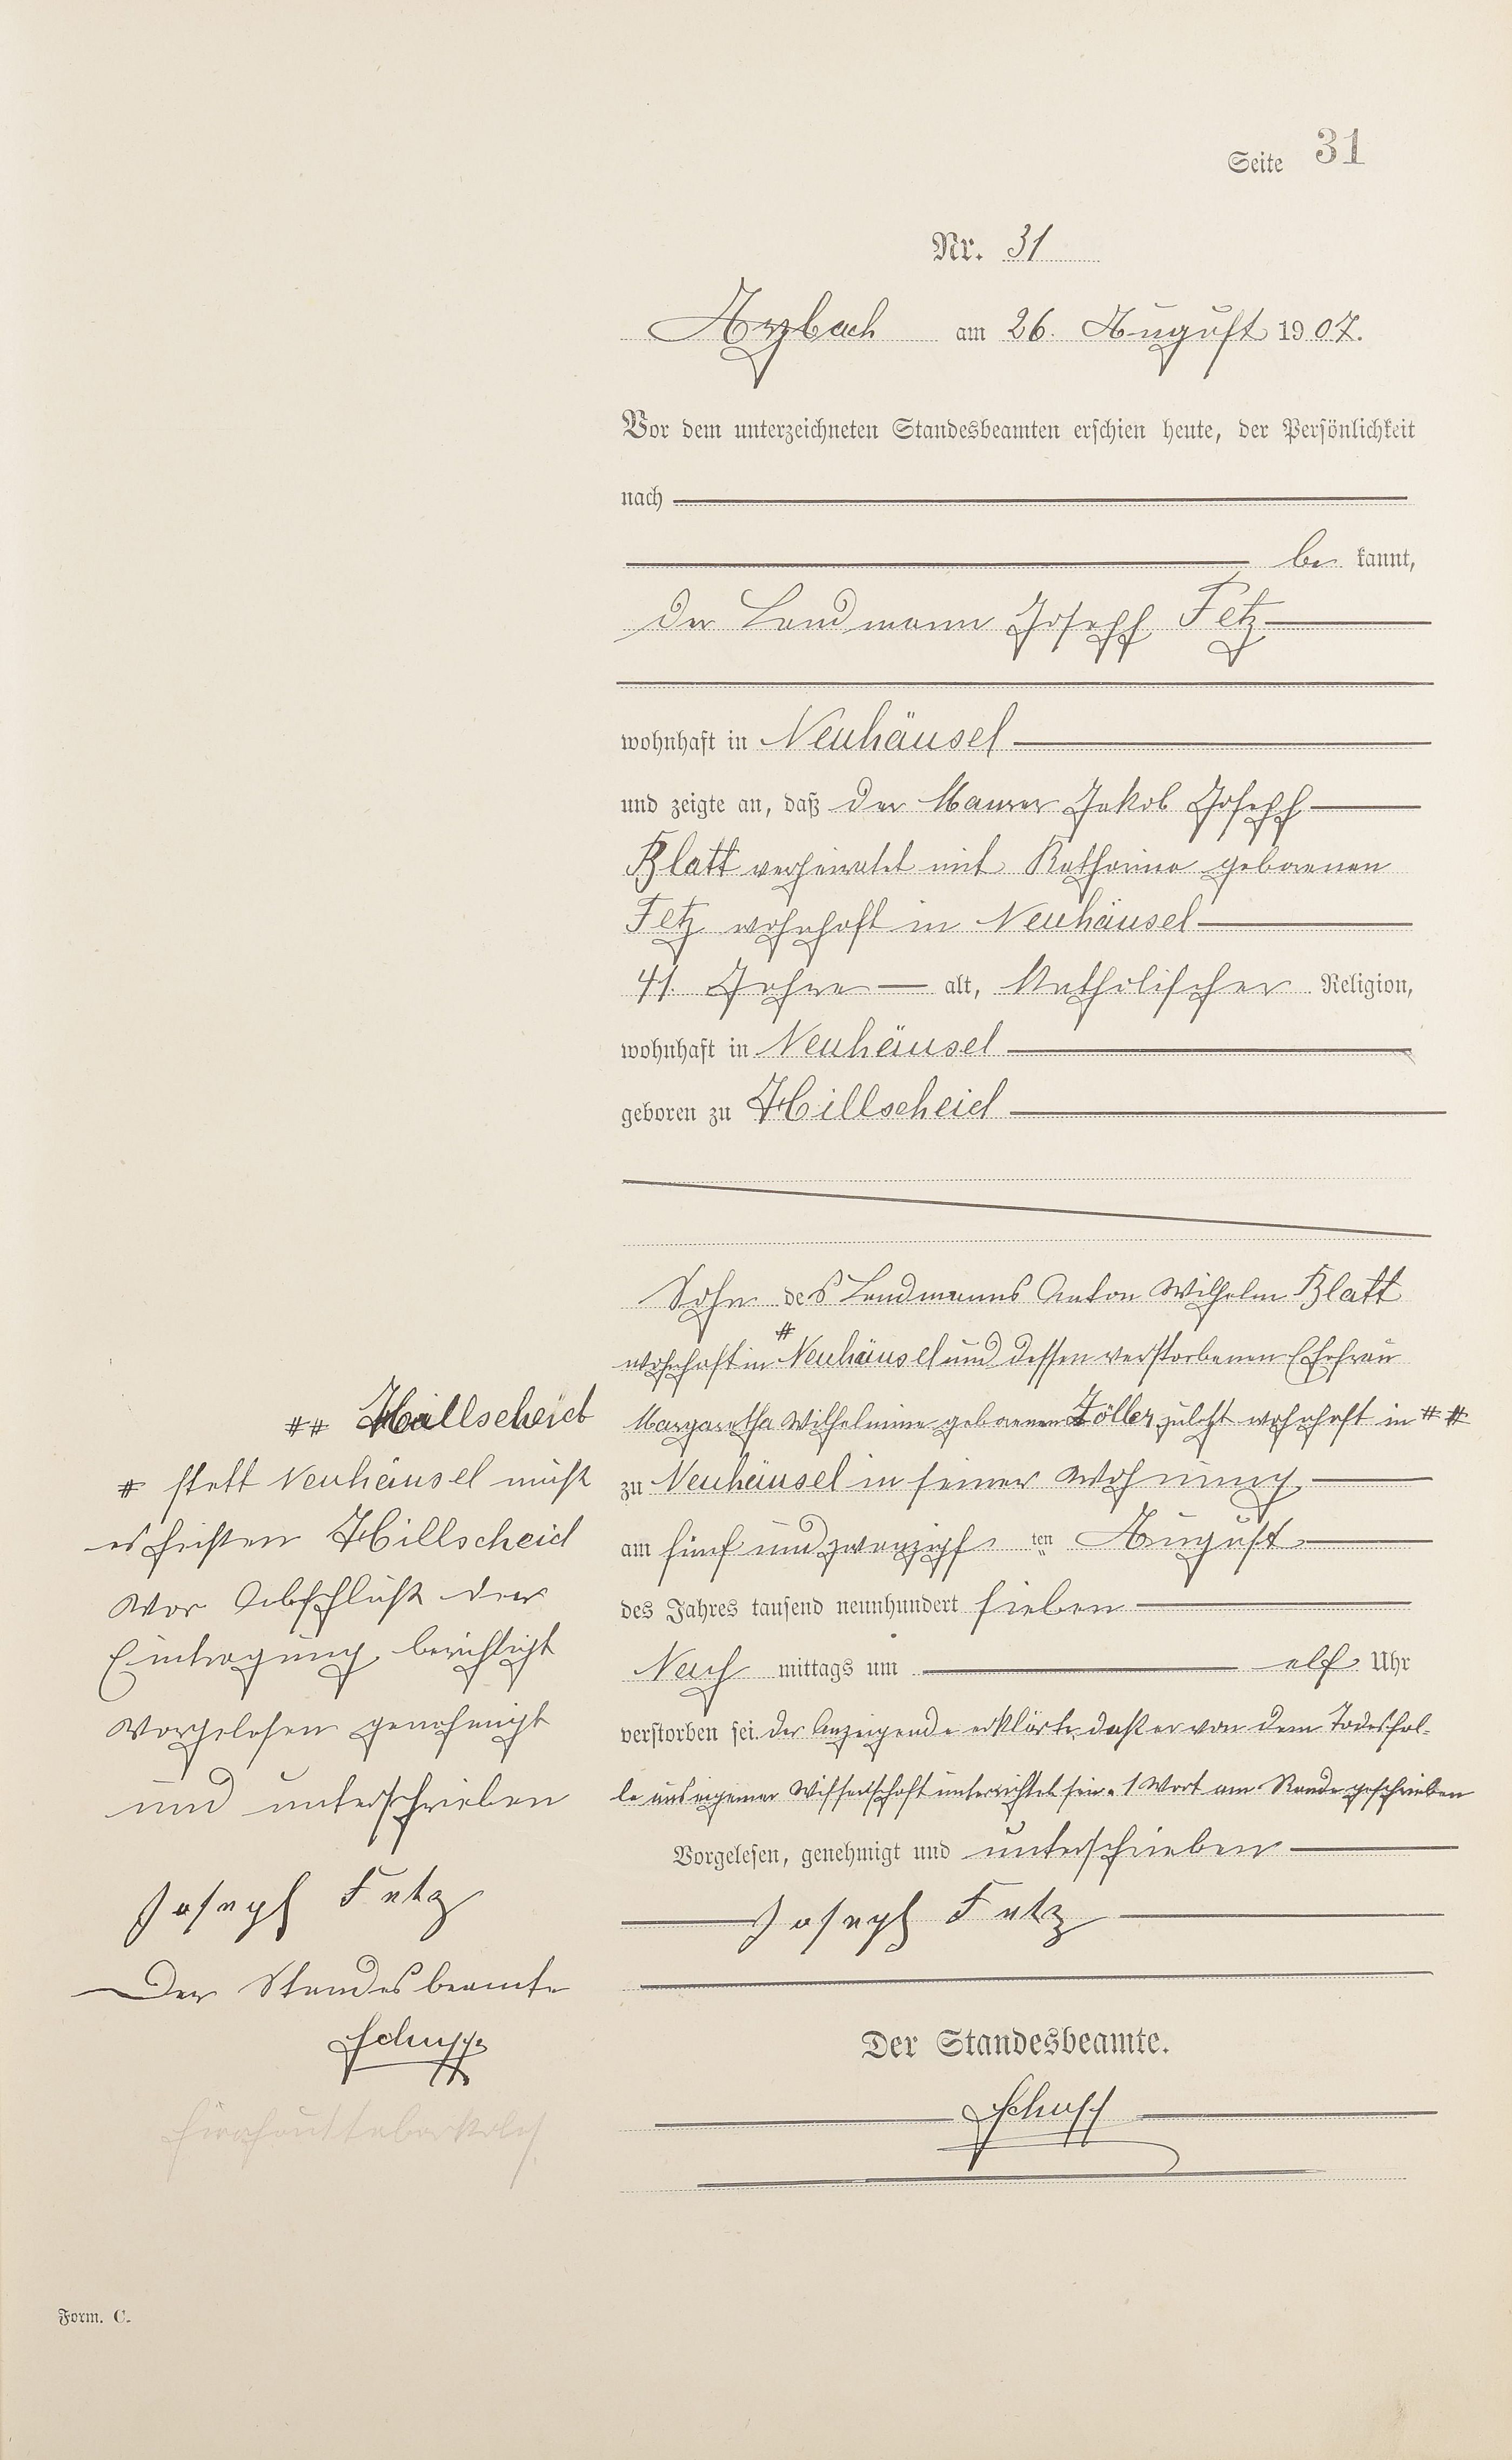 Seite 31
Nr. 31
Arzbach am 26. August 1907.
Vor dem unterzeichneten Standesbeamten erschien heute, der Persönlichkeit
nach
be kannt,
der Landmann Joseph Fetz
wohnhaft in Neuhäusel
und zeigte an, daß der Maurer Jakob Joseph
Blatt verheiratet mit Katharina geborenen
Fetz wohnhaft in Neuhäusel
41 Jahre alt, katholischer Religion,
wohnhaft in Neuhäusel
geboren zu Hillscheid
Sohn des Landmanns Anton Wilhelm Blatt
wohnhaft in # Neuhäusel und dessen verstorbenen Ehefrau
Margaretha Wilhelmine geborenen Zöller zuletzt wohnhaft in ##
zu Neuhäusel in seiner Wohnung
am fünf und zwanzigs ten August
des Jahres tausend neunhundert sieben
Nach mittags um elf Uhr
verstorben sei. Der Anzeigende erklärte, daß er von dem Todesfal-
le aus eigener Wissenschaft unterrichtet sei. 1 Wort am Rande geschrieben
Vorgelesen, genehmigt und unterschrieben
Joseph Fetz
Der Standesbeamte.
Schupp
## Hillscheid
# statt Neuhäusel muß
es heißen Hillscheid
Vor Abschluß der
Eintragung berichtigt
Vorgelesen genehmigt
und unterschrieben
Joseph Fetz
Der Standesbeamte
Schupp
Form. C.